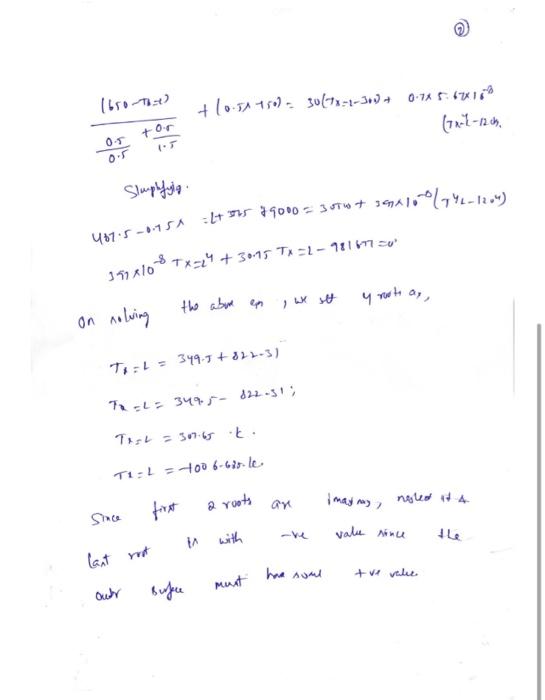 ②
(650 - Tx=L) / (0.5/0.5 + 0.5/1.5) + (0.5 × 150) = 30(Tx=L - 300) + 0.7 × 5.67 × 10^-8
Simplifying.
487.5 - 0.75 = L + 9000 = + 397 × 10^-8 (T^4 L -
397 × 10^-8 Tx=L^4 + 30.75 Tx=L - 981677 = 0
On solving the above eqn, we get 4 roots as,
Tx=L = 349.5 + 822.31
Tx=L = 349.5 - 822.31;
Tx=L = 307.65 k.
Tx=L = -1006.635 k.
Since first 2 roots are imaginary, neglect it &
last root is with -ve value since the
outer surface must have some +ve value